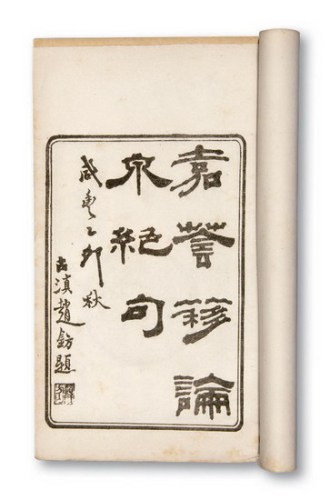 嘉蔭簃論
泉絕句
咸豐乙卯秋
古滇趙鈁題